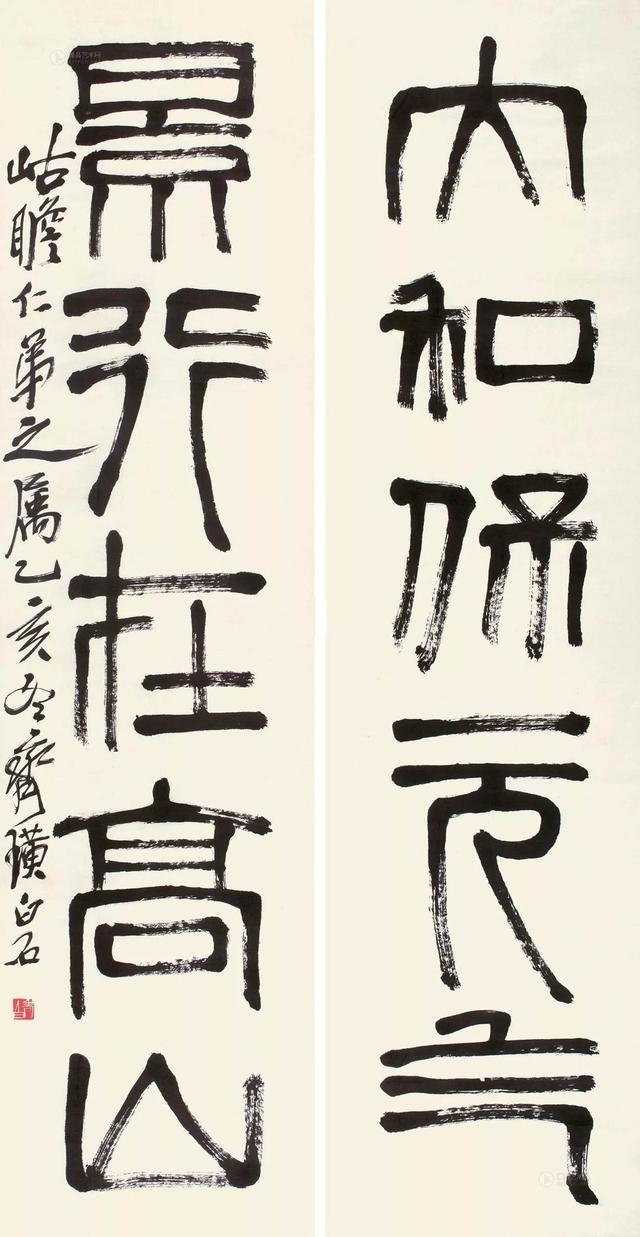 大和保元气
景行在高山
岵瞻仁弟之属乙亥冬齊璜白石